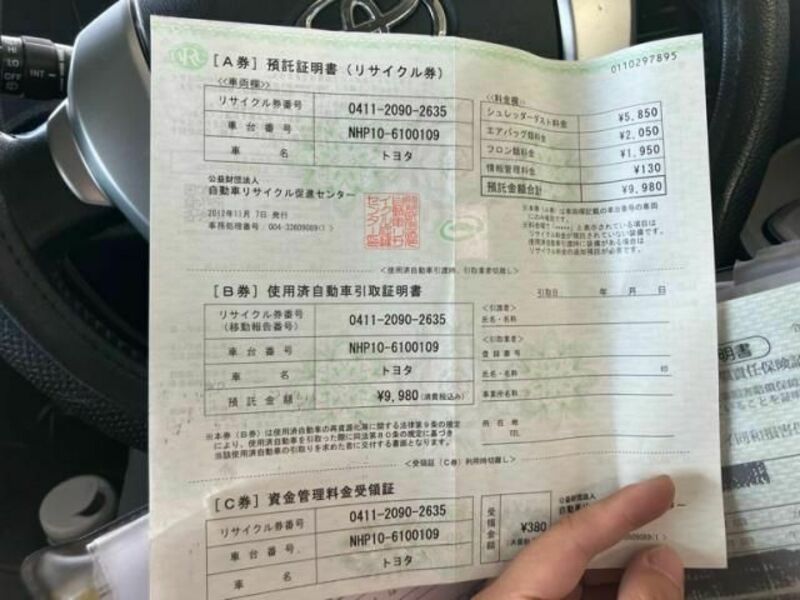 HI
LO
OFF
INT
0110297895
[A券] 預託証明書（リサイクル券）
<<車両欄>>
リサイクル券番号 0411-2090-2635
車台番号 NHP10-6100109
車名 トヨタ
<<料金欄>>
シュレッダーダスト料金 ¥5,850
エアバッグ類料金 ¥2,050
フロン類料金 ¥1,950
情報管理料金 ¥130
預託金額合計 ¥9,980
公益財団法人
自動車リサイクル促進センター
2012年11月 7日 発行
事務処理番号：004-33609089(1)
<使用済自動車引渡時、引取業者切離し>
[B券] 使用済自動車引取証明書
引取日 年 月 日
リサイクル券番号
(移動報告番号) 0411-2090-2635
車台番号 NHP10-6100109
車名 トヨタ
預託金額 ¥9,980(消費税込み)
<引渡者>
氏名・名称
<引取業者>
登録番号
氏名・名称 印
事業所名称
所在地
TEL
※本券（B券）は使用済自動車の再資源化等に関する法律第9条の規定
により、使用済自動車を引取った際に同法第80条の規定に基づき
当該使用済自動車の引取りを求めた者に交付する書面となります。
<受領証（C券）利用時切離し>
[C券] 資金管理料金受領証
リサイクル券番号 0411-2090-2635
車台番号 NHP10-6100109
車名 トヨタ
受領金額 ¥380
公益財団法人
明書